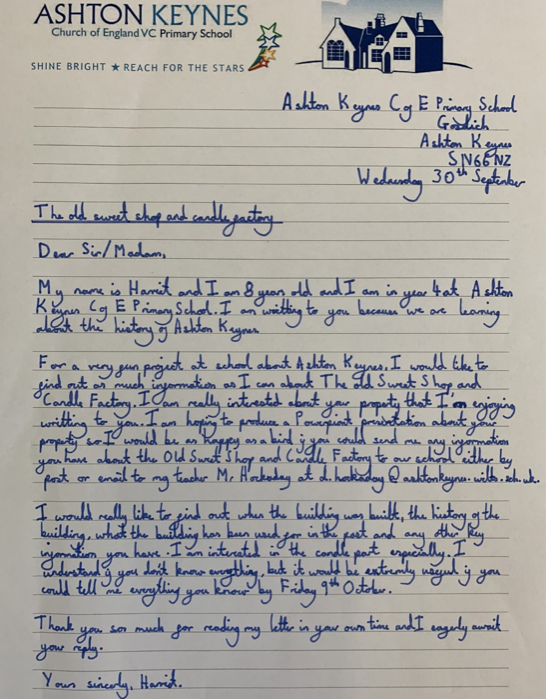 ASHTON KEYNES
Church of England VC Primary School
SHINE BRIGHT ★ REACH FOR THE STARS
Ashton Keynes C of E Primary School
Gosditch
Ashton Keynes
SN66NZ
Wednesday 30th September
The old sweet shop and candle factory
Dear Sir/Madam,
My name is Harriet and I am 8 years old and I am in year 4 at Ashton
Keynes C of E Primary School. I am writting to you because we are learning
about the history of Ashton Keynes
For a very fun project at school about Ashton Keynes, I would like to
find out as much information as I can about The old Sweet Shop and
Candle Factory. I am really interested about your propety that I'm enjoying
writting to you. I am hoping to produce a Powerpoint presentation about your
propety so I would be as happy as a bird if you could send me any information
you have about the Old Sweet Shop and Candle Factory to our school either by
post or email to my teacher Mr Hockaday at d.hockaday@ashtonkeynes.wilts.sch.uk.
I would really like to find out when the building was built, the history of the
building, what the building has been used for in the past and any other key
information you have. I am interested in the candle part especially. I
understand if you don't know everything, but it would be extremely useful if you
could tell me everything you know by Friday 9th October.
Thank you so much for reading my letter in your own time and I eagerly await
your reply.
Yours sincerly, Harriet.